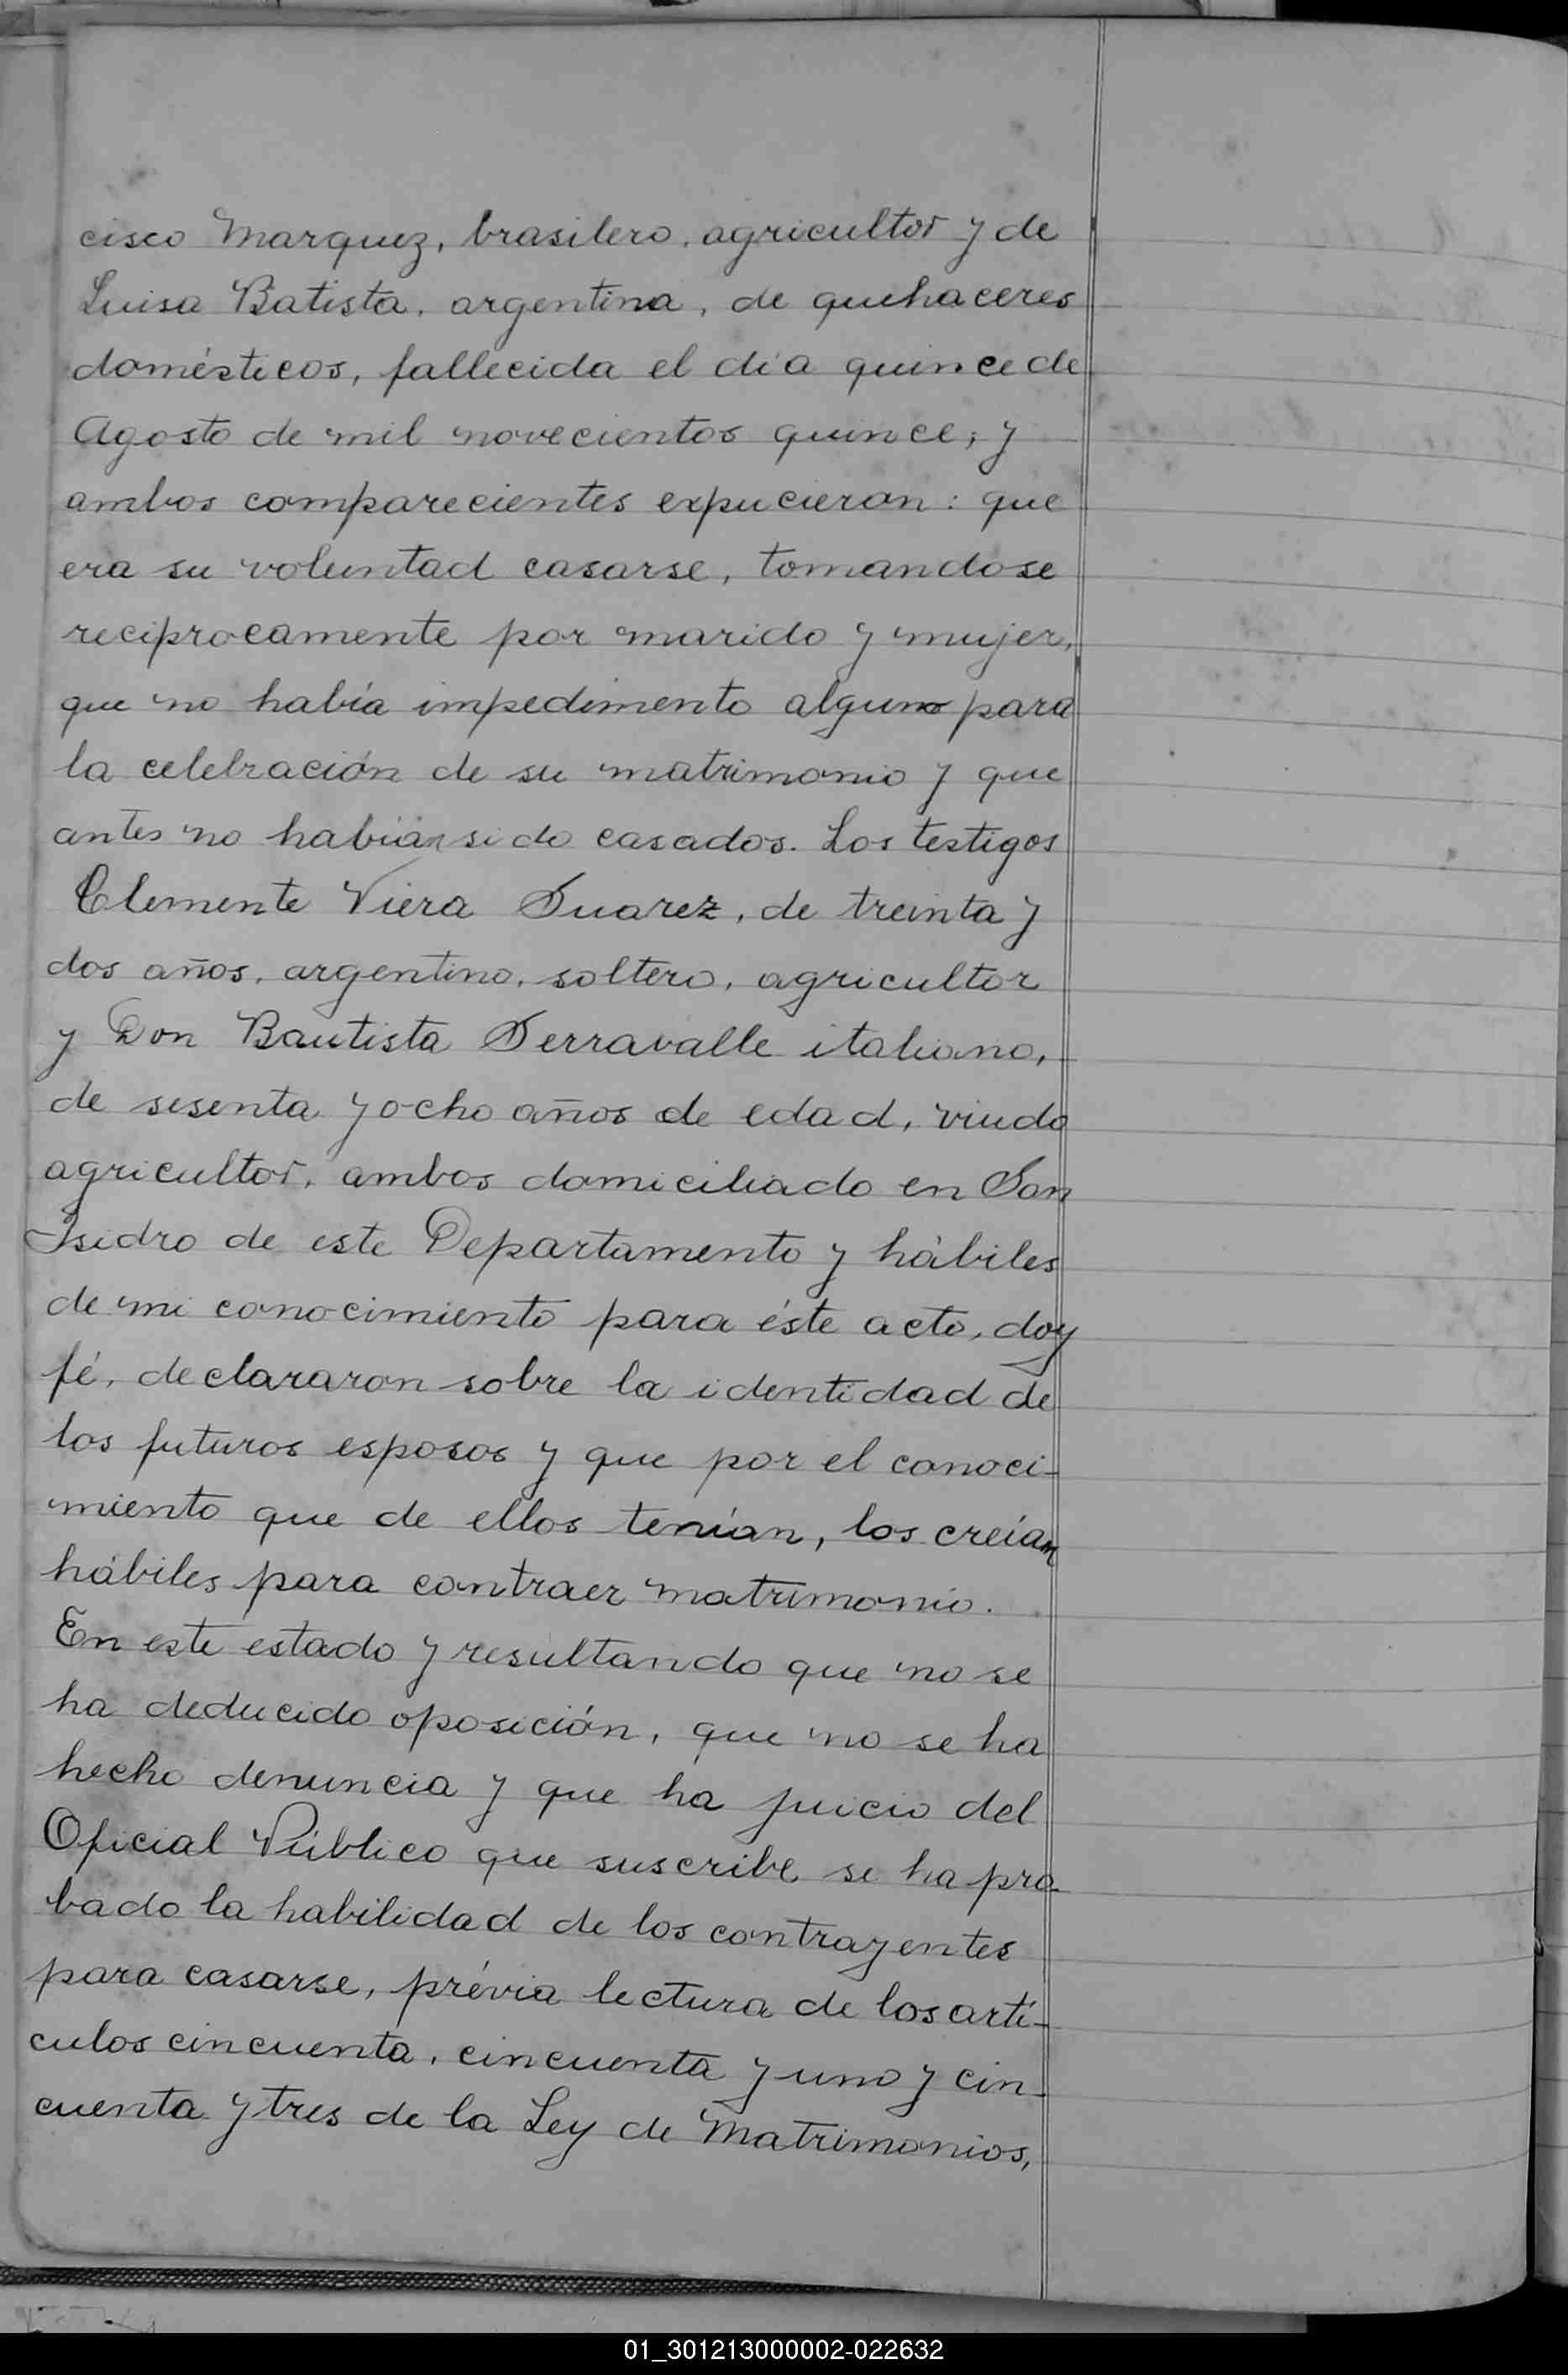 cisco Marquez, brasilero, agricultor y de
Luisa Batista, argentina, de quehaceres
domésticos, fallecida el día quince de
Agosto de mil novecientos quince; y
ambos comparecientes expucieron: que
era su voluntad casarse, tomandose
reciprocamente por marido y mujer,
que no había impedimento alguno para
la celebración de su matrimonio y que
antes no habían sido casados. Los testigos
Clemente Viera Suarez, de treinta y
dos años, argentino, soltero, agricultor
y Don Bautista Serravalle italiano,
de sesenta y ocho años de edad, viudo
agricultor, ambos domiciliado en San
Isidro de este Departamento y hábiles
de mi conocimiento para éste acto, doy
fé, declararon sobre la identidad de
los futuros esposos y que por el conoci-
miento que de ellos tenían, los creían
hábiles para contraer matrimonio.
En este estado y resultando que no se
ha deducido oposición, que no se ha
hecho denuncia y que ha juicio del
Oficial Público que suscribe se ha pro-
bado la habilidad de los contrayentes
para casarse, prévia lectura de los artí-
culos cincuenta, cincuenta y uno y cin-
cuenta y tres de la Ley de Matrimonios,
01_301213000002-022632